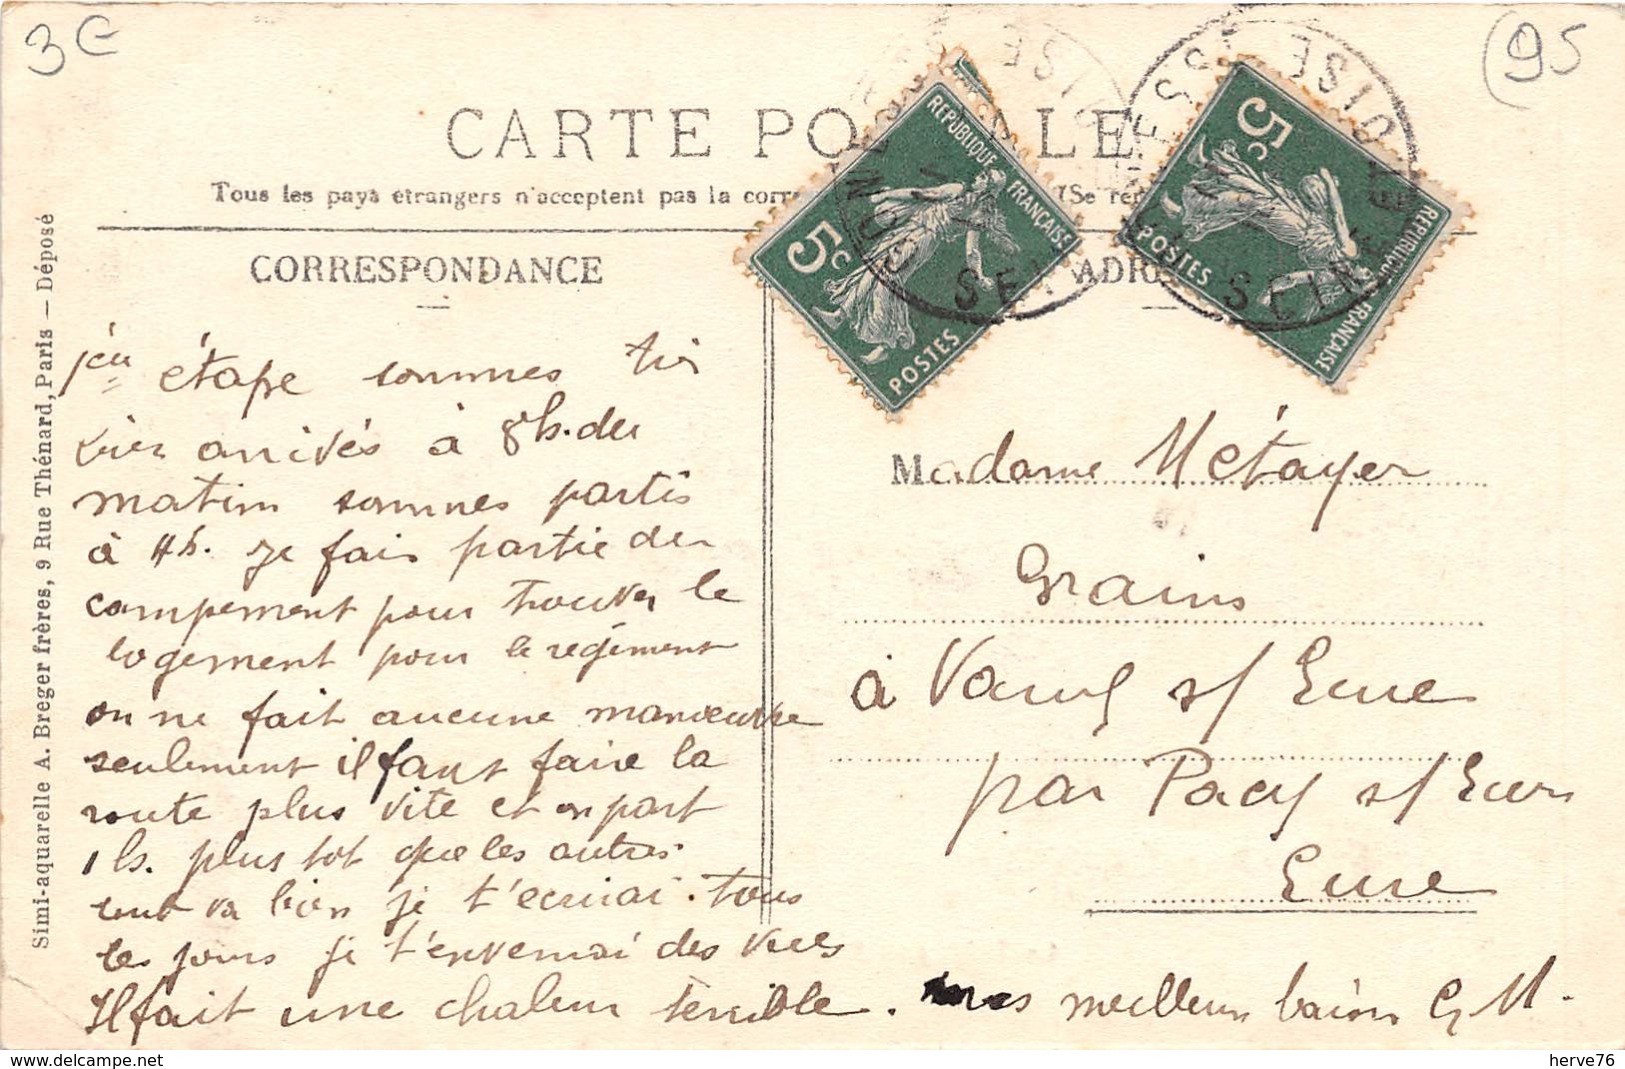 3€
95
CARTE PO LE
Tous les pays étrangers n'acceptent pas la corr (Se ren
CORRESPONDANCE
ADR
REPUBLIQUE FRANÇAISE
5c
POSTES
5c
POSTES
REPUBLIQUE FRANÇAISE
SEINE
OISE
SEINE
OISE
étape sommes
arrivés à 8h. du
matin sommes partis
à 4h. je fais partie du
campement pour trouver le
logement pour le régiment
on ne fait aucune manœuvre
seulement il faut faire la
route plus vite et on part
1h. plus tot que les autres
tout va bien je t'ecrirai tous
les jours je t'enverrai des vues
Il fait une chaleur terrible. mes meilleurs baisers G. M.
Madame Métayer
Grains
à Vaux s/ Eure
par Pacy s/ Eure
Eure
Simi-aquarelle A. Breger frères, 9 Rue Thénard, Paris — Déposé
delcampe.net
herve76